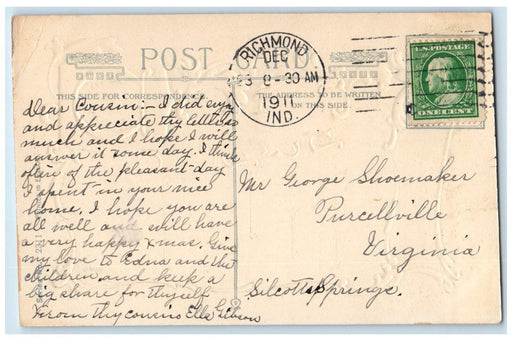 POST CARD
THIS SIDE FOR CORRESPONDENCE.
THE ADDRESS TO BE WRITTEN
ON THIS SIDE.
RICHMOND
DEC
23
8-30 AM
1911
IND.
U.S. POSTAGE
ONE CENT
Dear Cousin:- I did enjoy
and appreciate thy letter so
much and I hope I will
answer it some day. I think
often of the pleasant day
I spent in your nice
home. I hope you are
all well and will have
a very happy Xmas. Give
my love to Edna and the
children and keep a
big share for thyself
From thy cousin Ella Gibson
Mr George Shoemaker
Purcellville
Virginia
Silcott Springs.